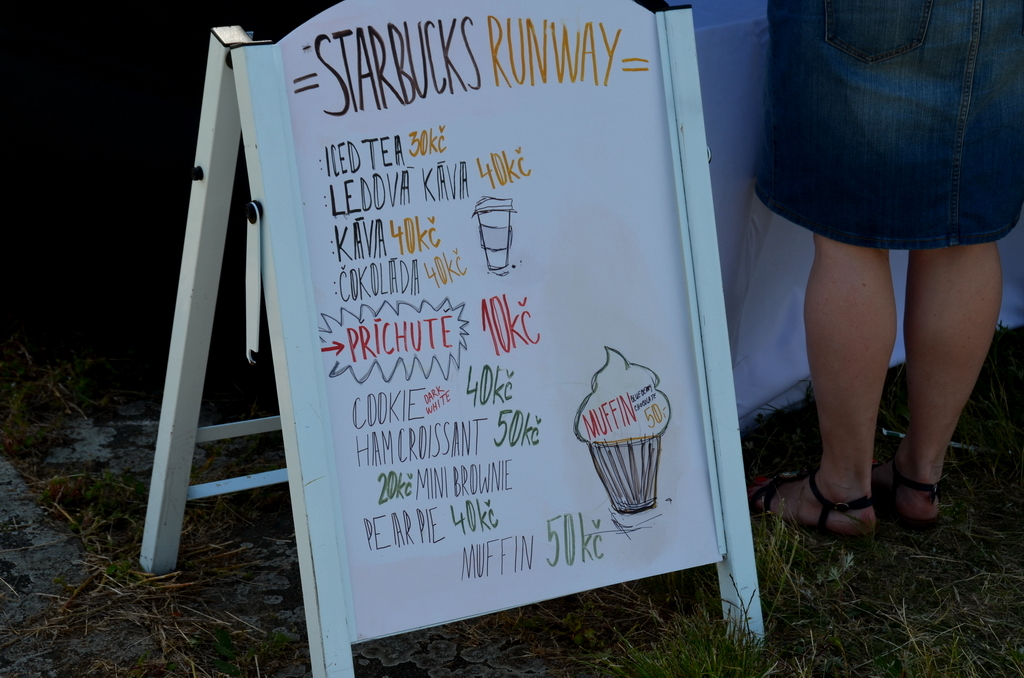 =STARBUCKS RUNWAY=
:ICED TEA 30kč
:LEDOVÁ KÁVA 40kč
:KÁVA 40kč
:ČOKOLÁDA 40kč
→PŘÍCHUTĚ 10kč
COOKIE DARK WHITE 40kč
HAM CROISSANT 50kč
20kč MINI BROWNIE
PEAR PIE 40kč
MUFFIN 50kč
MUFFIN CHOCOLATE 50,-